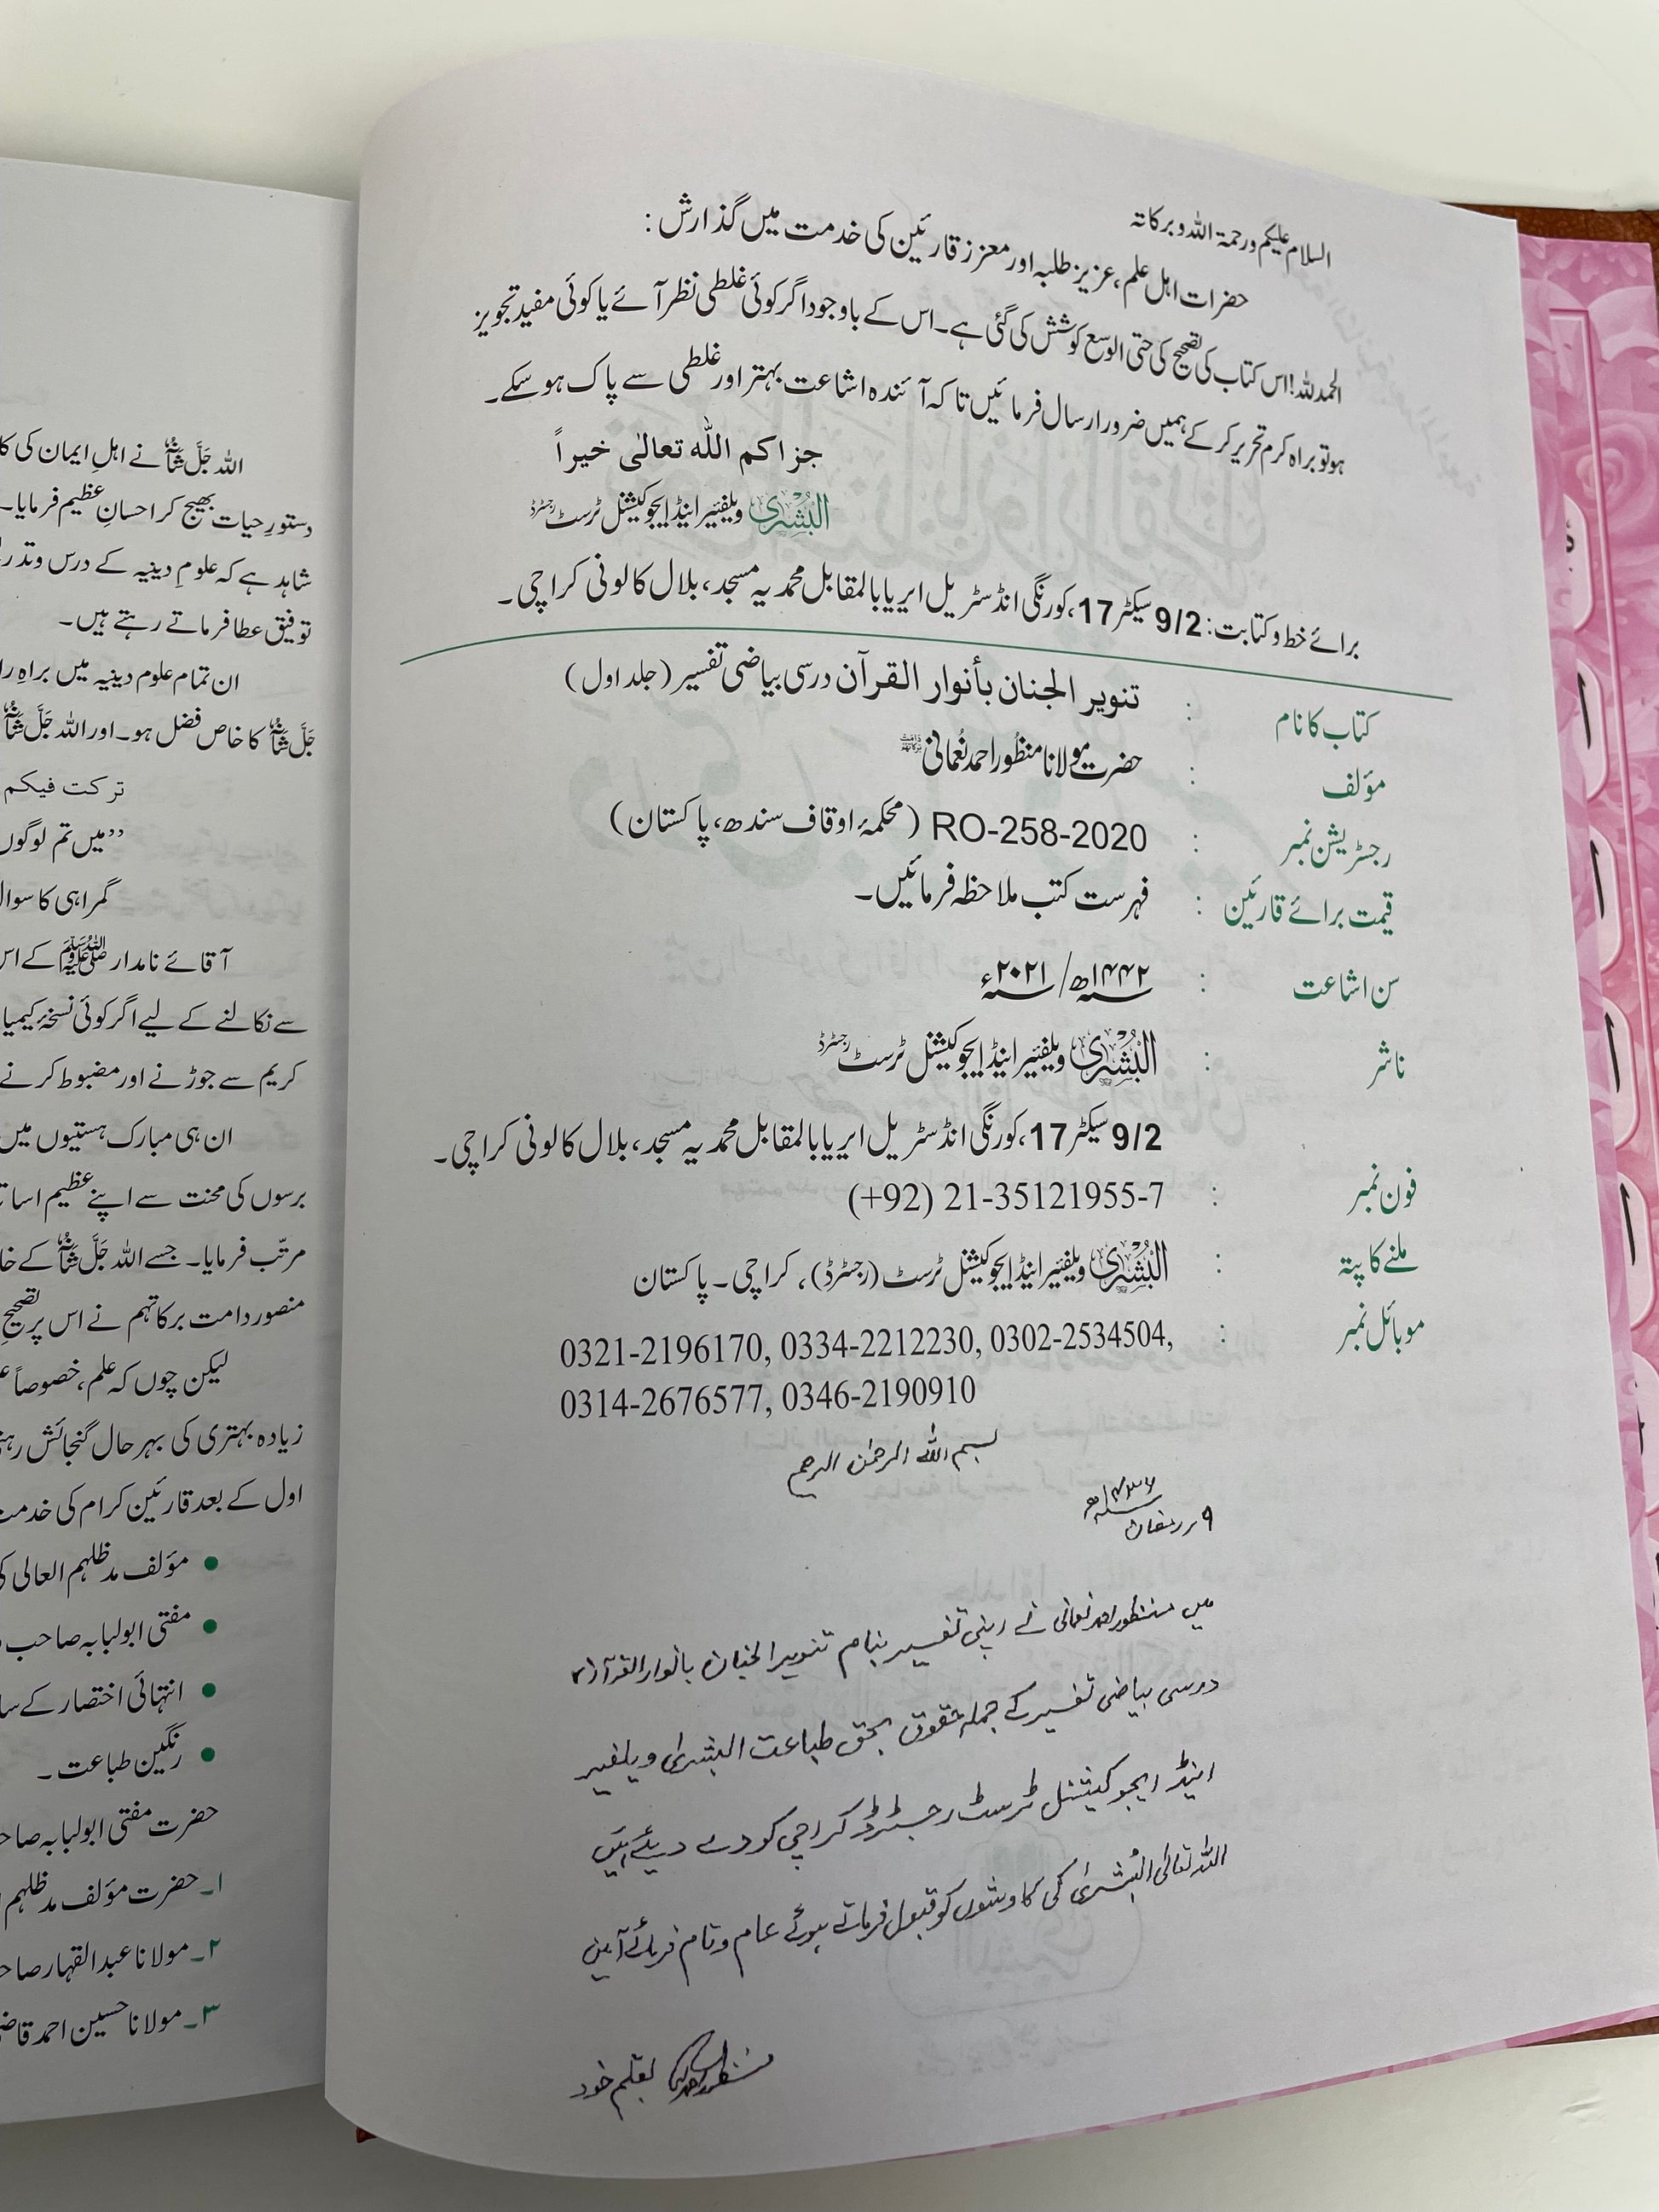 السلام علیکم ورحمۃ اللہ وبرکاتہ
حضرات اہل علم، عزیز طلبہ اور معزز قارئین کی خدمت میں گذارش:
الحمد للہ! اس کتاب کی تصحیح کی حتی الوسع کوشش کی گئی ہے۔ اس کے باوجود اگر کوئی غلطی نظر آئے یا کوئی مفید تجویز
ہو تو براہ کرم تحریر کر کے ہمیں ضرور ارسال فرمائیں تاکہ آئندہ اشاعت بہتر اور غلطی سے پاک ہو سکے۔
جزاکم اللّٰہ تعالیٰ خیراً
البُشریٰ ویلفئیر اینڈ ایجوکیشنل ٹرسٹ رجسٹرڈ
برائے خط و کتابت: 9/2 سیکٹر 17، کورنگی انڈسٹریل ایریا بالمقابل محمدیہ مسجد، بلال کالونی کراچی۔
کتاب کا نام : تنویر الجنان بأنوار القرآن درسی بیاضی تفسیر (جلد اول)
مؤلف : حضرت مولانا منظور احمد نُعمانی دامت برکاتہم
رجسٹریشن نمبر : RO-258-2020 (محکمۂ اوقاف سندھ، پاکستان)
قیمت برائے قارئین : فہرست کتب ملاحظہ فرمائیں۔
سن اشاعت : ۱۴۴۲ھ/ ۲۰۲۱ء
ناشر : البُشریٰ ویلفئیر اینڈ ایجوکیشنل ٹرسٹ رجسٹرڈ
9/2 سیکٹر 17، کورنگی انڈسٹریل ایریا بالمقابل محمدیہ مسجد، بلال کالونی کراچی۔
فون نمبر : (+92) 21-35121955-7
ملنے کا پتہ : البُشریٰ ویلفئیر اینڈ ایجوکیشنل ٹرسٹ (رجسٹرڈ)، کراچی۔ پاکستان
موبائل نمبر : 0321-2196170, 0334-2212230, 0302-2534504,
0314-2676577, 0346-2190910
بسم اللہ الرحمٰن الرحیم
۹ رمضان
میں منظور احمد نعمانی نے اپنی تفسیر بنام تنویر الجنان بانوار القرآن
درسی بیاضی تفسیر کے جملہ حقوق بحق طباعت البشریٰ ویلفیر
اینڈ ایجوکیشنل ٹرسٹ رجسٹرڈ کراچی کو دے دیئے ہیں
اللہ تعالیٰ البُشریٰ کی کاوشوں کو قبول فرماتے ہوئے عام و تام فرمائے آمین
بقلم خود
اللہ جَلَّ شَانُہٗ نے اہلِ ایمان کی
دستورِ حیات بھیج کر احسانِ عظیم فرمایا۔
شاہد ہے کہ علومِ دینیہ کے درس و
توفیق عطا فرماتے رہتے ہیں۔
ان تمام علوم دینیہ میں براہِ
جَلَّ شَانُہٗ کا خاص فضل ہو۔ اور اللہ جَلَّ شَانُہٗ
ترکت فیکم
”میں تم لوگوں
گمراہی کا سوال
آقائے نامدار ﷺ کے اس
سے نکالنے کے لیے اگر کوئی نسخۂ کیمیا
کریم سے جوڑنے اور مضبوط کرنے
ان ہی مبارک ہستیوں میں
برسوں کی محنت سے اپنے عظیم
مرتّب فرمایا۔ جسے اللہ جَلَّ شَانُہٗ کے
منصور دامت برکاتہم نے اس پر
لیکن چوں کہ علم، خصوصاً
زیادہ بہتری کی بہر حال گنجائش
اول کے بعد قارئین کرام کی خدمت
● مؤلف مدظلہم العالی
● مفتی ابولبابہ صاحب
● انتہائی اختصار کے
● رنگین طباعت۔
حضرت مفتی ابولبابہ
۱۔ حضرت مؤلف مدظلہم
۲۔ مولانا عبدالقہار
۳۔ مولانا حسین احمد